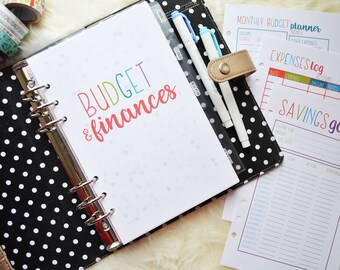 BUDGET
& finances
MONTHLY BUDGET planner
EXPENSES log
SAVINGS go